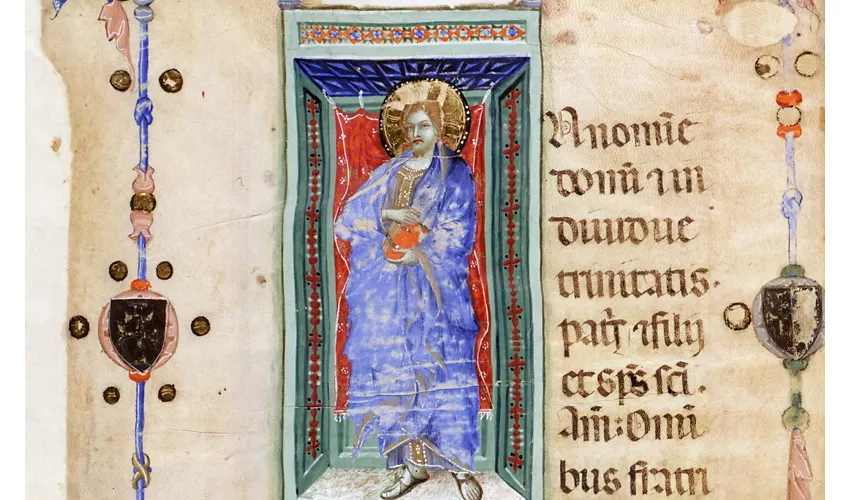 A nomīe
domī ⁊ in
diuidue
trinitatis.
pat̄ꝫ ⁊ filij
et sp̄s sc̄i.
Am̄: Omī
bus fratri